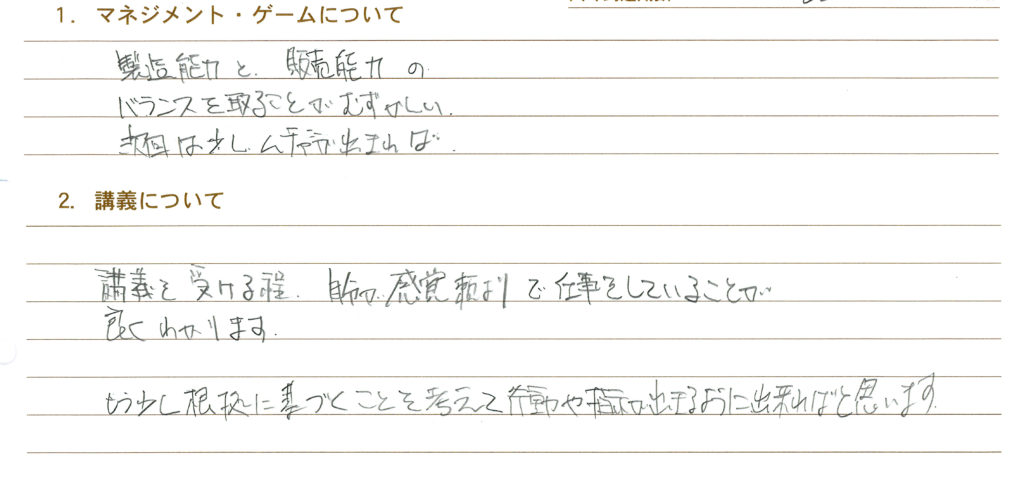 1. マネジメント・ゲームについて
製造能力と、販売能力の
バランスを取ることがむずかしい。
は少し ムチャが出まれば。
2. 講義について
講義を受ける程、自分が感覚頼よりで仕事をしていることが
良くわかります。
もう少し根拠に基づくことを考えて行動や指示が出まるように出来ればと思います。